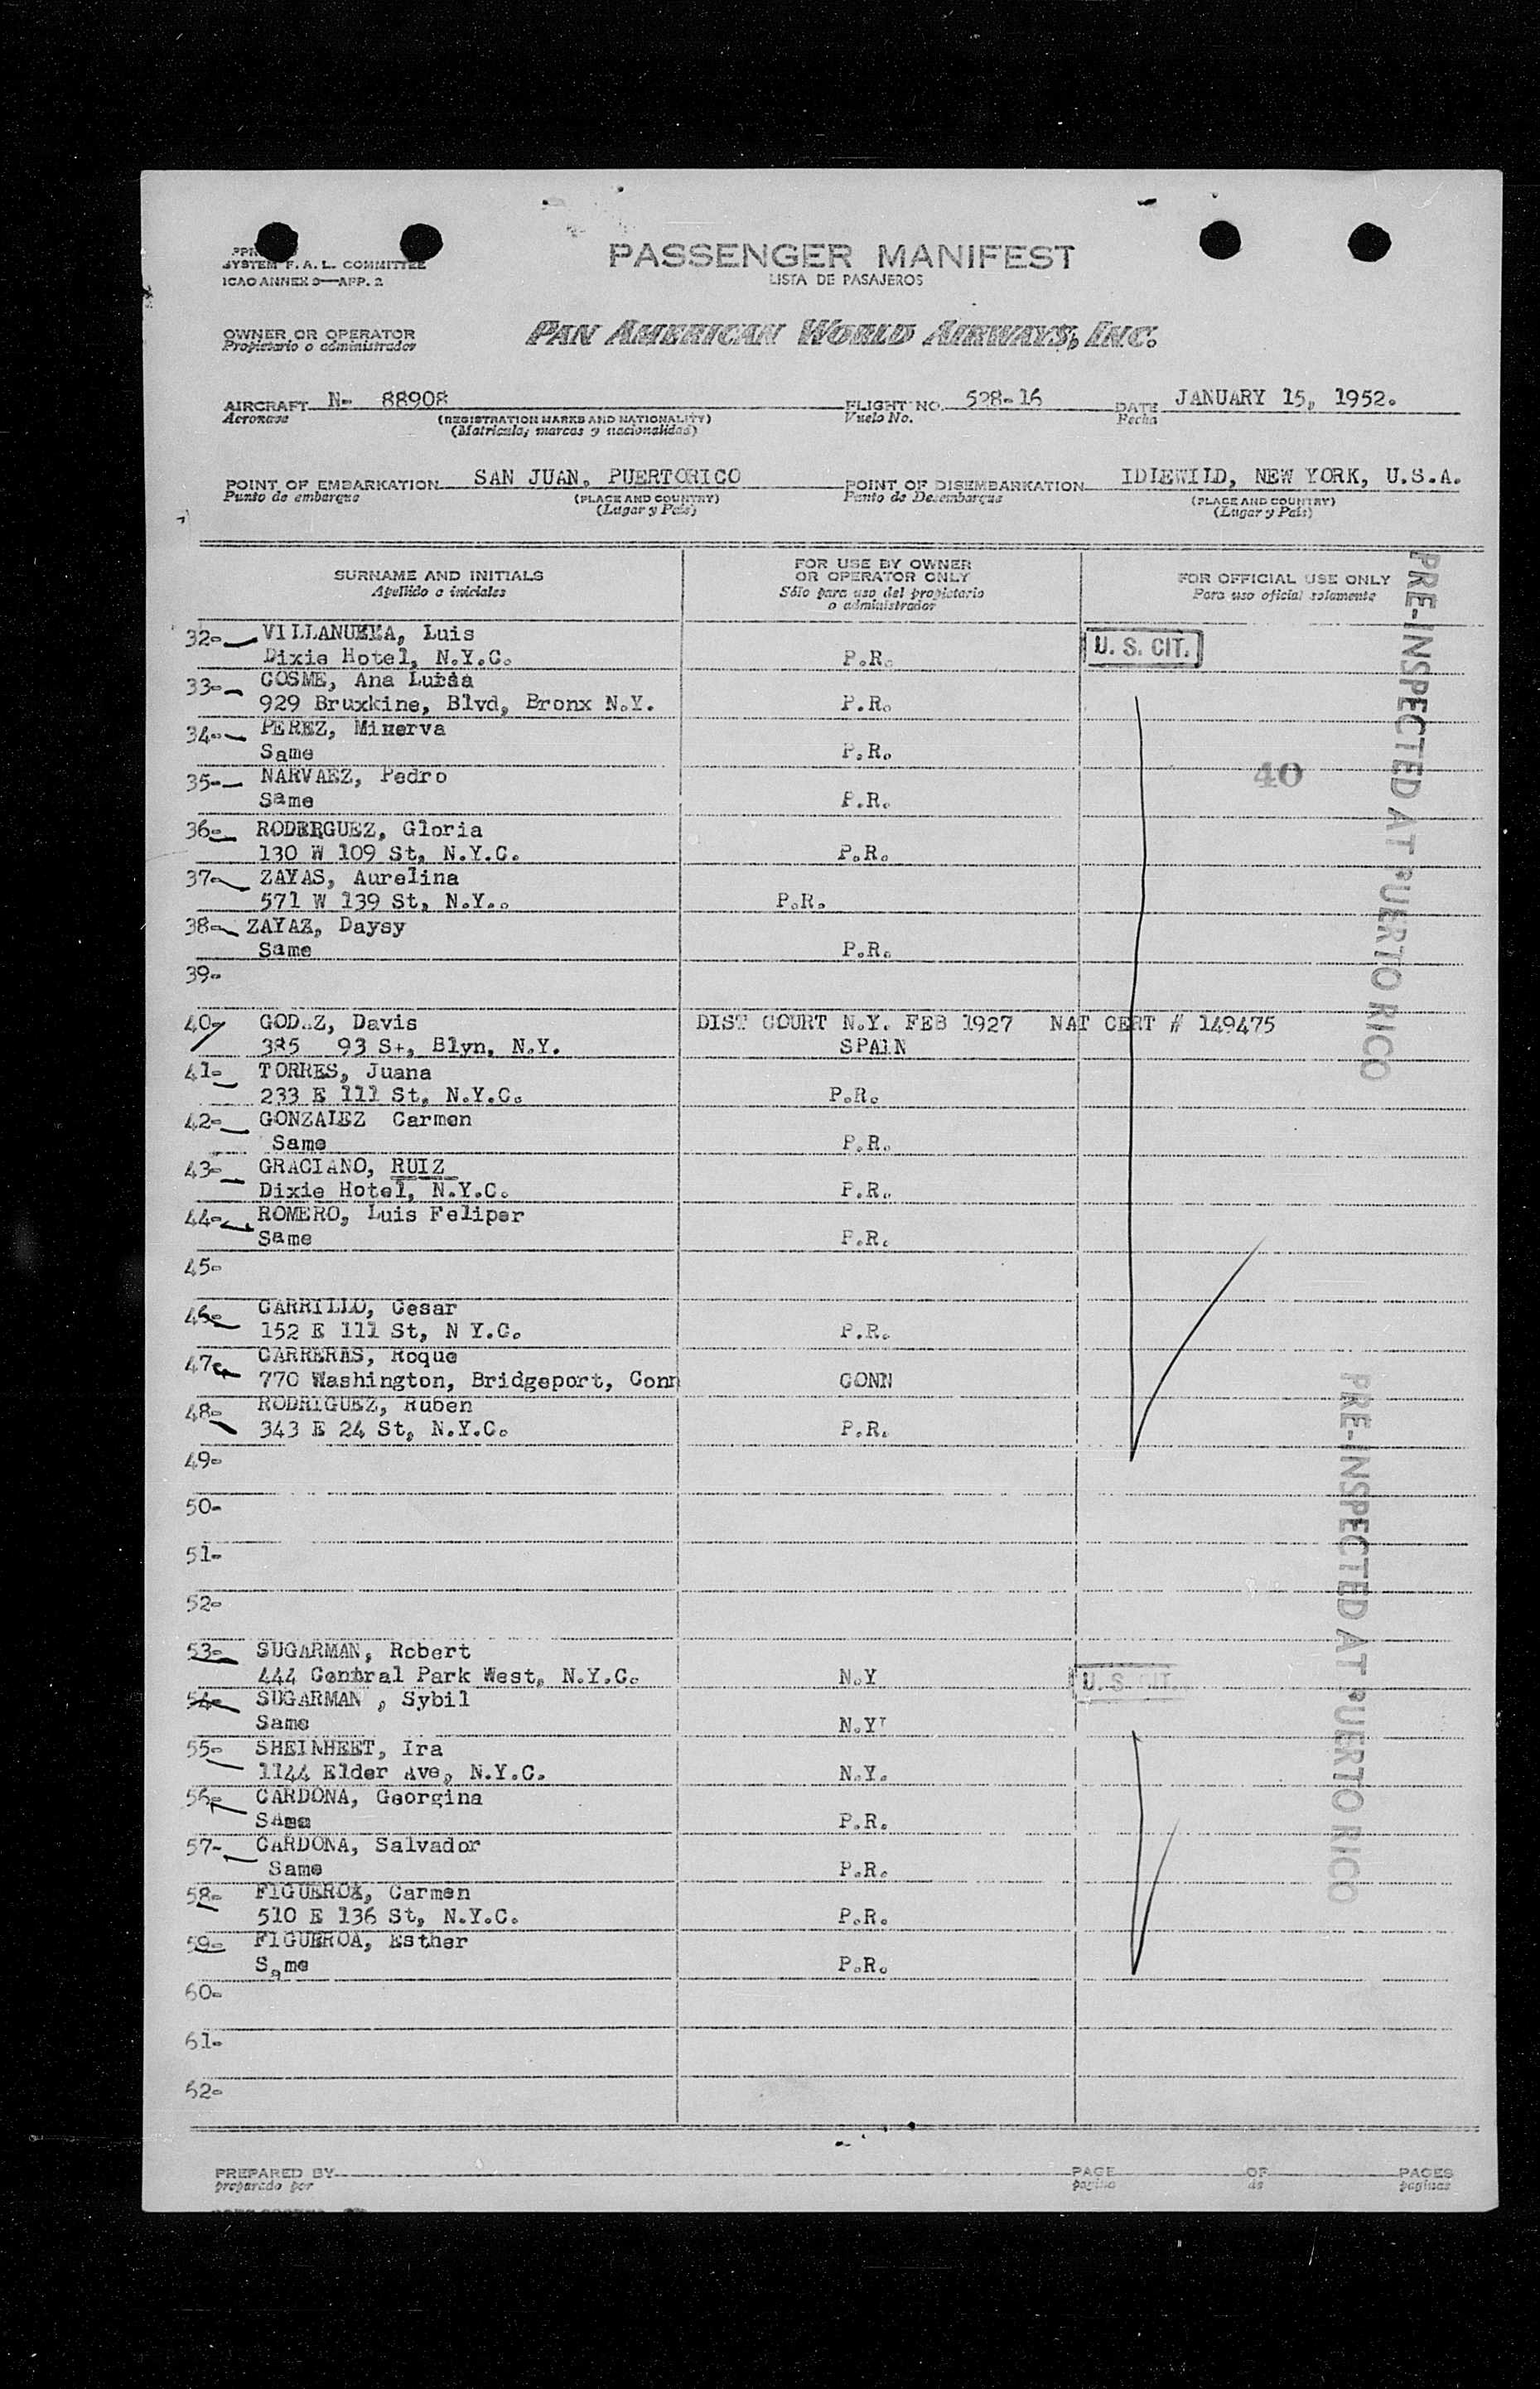 SYSTEM F. A. L. COMMITTEE
ICAO ANNEX 9—APP. 2
PASSENGER MANIFEST
LISTA DE PASAJEROS
OWNER OR OPERATOR
Propietario o administrador
PAN AMERICAN WORLD AIRWAYS, INC.
AIRCRAFT N- 88908 FLIGHT NO. 528-16 DATE JANUARY 15, 1952.
Aeronave (REGISTRATION MARKS AND NATIONALITY) Vuelo No. Fecha
(Matricula, marcas y nacionalidad)
POINT OF EMBARKATION SAN JUAN, PUERTORICO POINT OF DISEMBARKATION IDLEWILD, NEW YORK, U.S.A.
Punto de embarque (PLACE AND COUNTRY) Punto de Desembarque (PLACE AND COUNTRY)
(Lugar y País) (Lugar y País)
SURNAME AND INITIALS
Apellido e iniciales
FOR USE BY OWNER
OR OPERATOR ONLY
Sólo para uso del propietario
o administrador
FOR OFFICIAL USE ONLY
Para uso oficial solamente
32- VILLANUEVA, Luis
Dixie Hotel, N.Y.C. P.R. U. S. CIT.
33- COSME, Ana Luisa
929 Bruxkine, Blvd, Bronx N.Y. P.R.
34- PEREZ, Minerva
Same P.R.
35- NARVAEZ, Pedro 40
Same P.R.
36- RODERGUEZ, Gloria
130 W 109 St, N.Y.C. P.R.
37- ZAYAS, Aurelina
571 W 139 St, N.Y.. P.R.
38- ZAYAZ, Daysy
Same P.R.
39-
40- Davis DIST COURT N.Y. FEB 1927 NAT CERT # 149475
385 93 St, Blyn, N.Y. SPAIN
41- TORRES, Juana
233 E 111 St, N.Y.C. P.R.
42- GONZALEZ Carmen
Same P.R.
43- GRACIANO, RUIZ
Dixie Hotel, N.Y.C. P.R.
44- ROMERO, Luis Feliper
Same P.R.
45-
46- CARRILLO, Cesar
152 E 111 St, N Y.C. P.R.
47- CARRERAS, Roque
770 Washington, Bridgeport, Conn CONN
48- RODRIGUEZ, Ruben
343 E 24 St, N.Y.C. P.R.
49-
50-
51-
52-
53- SUGARMAN, Robert
444 Central Park West, N.Y.C. N.Y U. S. CIT.
54- SUGARMAN , Sybil
Same N.Y
55- SHEINHEET, Ira
1144 Elder Ave, N.Y.C. N.Y.
56- CARDONA, Georgina
Same P.R.
57- CARDONA, Salvador
Same P.R.
58- FIGUEROA, Carmen
510 E 136 St, N.Y.C. P.R.
59- FIGUEROA, Esther
Same P.R.
60-
61-
62-
PRE-INSPECTED AT PUERTO RICO
PRE-INSPECTED AT PUERTO RICO
PREPARED BY PAGE OF PAGES
preparado por pagina de paginas